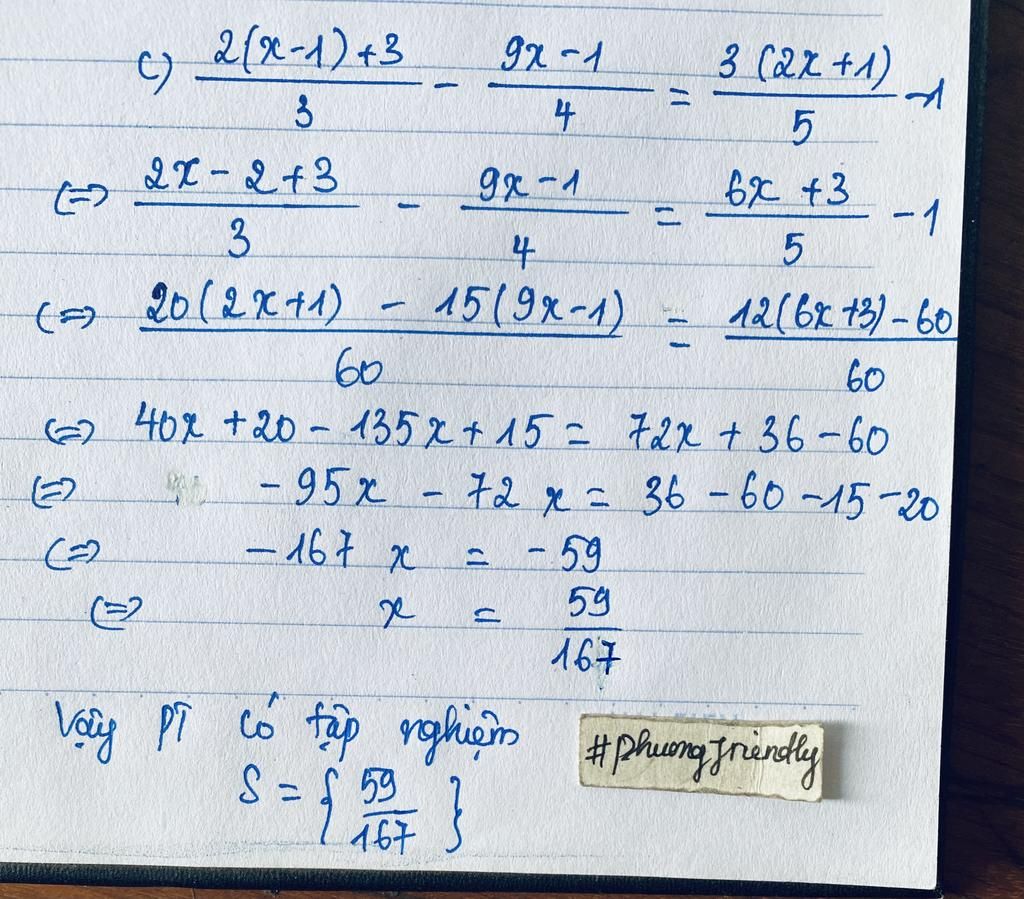 c) \frac{2(x-1)+3}{3} - \frac{9x-1}{4} = \frac{3(2x+1)}{5} -1
⇔ \frac{2x-2+3}{3} - \frac{9x-1}{4} = \frac{6x+3}{5} -1
⇔ \frac{20(2x+1) - 15(9x-1)}{60} = \frac{12(6x+3)-60}{60}
⇔ 40x + 20 - 135x + 15 = 72x + 36 - 60
⇔ -95x - 72x = 36 - 60 - 15 - 20
⇔ -167x = -59
⇔ x = \frac{59}{167}
Vậy PT có tập nghiệm
S = { \frac{59}{167} }
#phuongfriendly